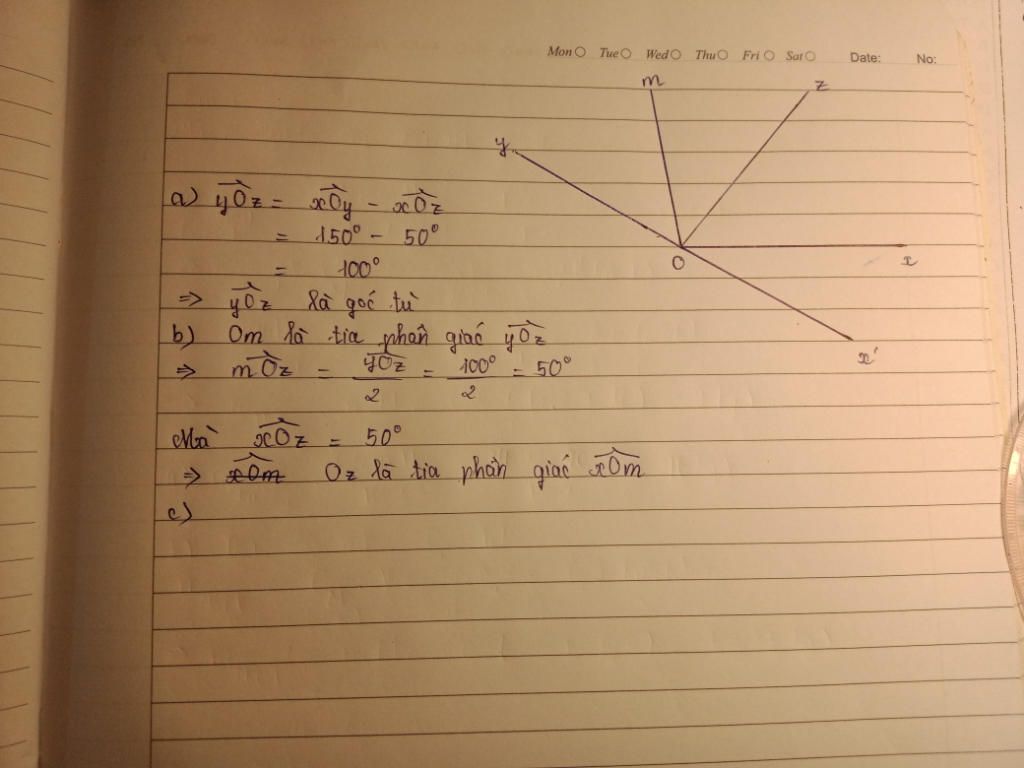 Mon Tue Wed Thu Fri Sat Date: No:
m
z
y
O
x
x'
a) yÔz = xÔy - xÔz
= 150° - 50°
= 100°
=> yÔz là góc tù
b) Om là tia phân giác yÔz
=> mÔz = yÔz/2 = 100°/2 = 50°
Mà xÔz = 50°
=> xÔm Oz là tia phân giác xÔm
c)